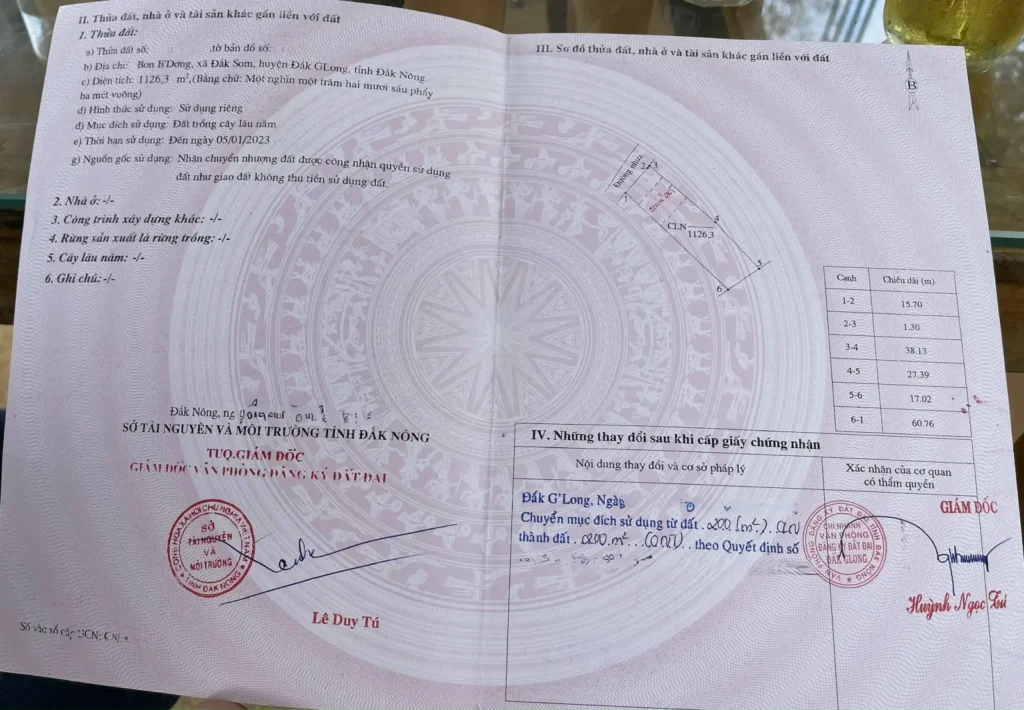 II. Thửa đất, nhà ở và tài sản khác gắn liền với đất
1. Thửa đất:
a) Thửa đất số: ,tờ bản đồ số:
b) Địa chỉ: Bon B'Dơng, xã Đắk Som, huyện Đắk GLong, tỉnh Đắk Nông.
c) Diện tích: 1126,3 m², (Bằng chữ: Một nghìn một trăm hai mươi sáu phẩy
ba mét vuông)
d) Hình thức sử dụng: Sử dụng riêng
đ) Mục đích sử dụng: Đất trồng cây lâu năm
e) Thời hạn sử dụng: Đến ngày 05/01/2023
g) Nguồn gốc sử dụng: Nhận chuyển nhượng đất được công nhận quyền sử dụng
đất như giao đất không thu tiền sử dụng đất.
2. Nhà ở: -/-
3. Công trình xây dựng khác: -/-
4. Rừng sản xuất là rừng trồng: -/-
5. Cây lâu năm: -/-
6. Ghi chú: -/-
Đắk Nông,
SỞ TÀI NGUYÊN VÀ MÔI TRƯỜNG TỈNH ĐẮK NÔNG
TUQ.GIÁM ĐỐC
GIÁM ĐỐC VĂN PHÒNG ĐĂNG KÝ ĐẤT ĐAI
CỘNG HÒA XÃ HỘI CHỦ NGHĨA VIỆT NAM
SỞ
TÀI NGUYÊN
VÀ
MÔI TRƯỜNG
TỈNH ĐẮK NÔNG
Lê Duy Tú
Số vào sổ cấp GCN:
III. Sơ đồ thửa đất, nhà ở và tài sản khác gắn liền với đất
B
Đường nhựa
1
2
3
4
5
6
CLN
1126,3
Cạnh Chiều dài (m)
1-2 15.70
2-3 1.30
3-4 38.13
4-5 27.39
5-6 17.02
6-1 60.76
IV. Những thay đổi sau khi cấp giấy chứng nhận
Nội dung thay đổi và cơ sở pháp lý
Xác nhận của cơ quan
có thẩm quyền
Đắk G'Long, Ngày
Chuyển mục đích sử dụng từ đất .200 (m²). CLN
thành đất .200.m²...(ONT).. theo Quyết định số
GIÁM ĐỐC
VĂN PHÒNG ĐĂNG KÝ ĐẤT ĐAI TỈNH ĐẮK NÔNG
CHI NHÁNH
VĂN PHÒNG
ĐĂNG KÝ ĐẤT ĐAI
ĐẮK GLONG
Huỳnh Ngọc Tú